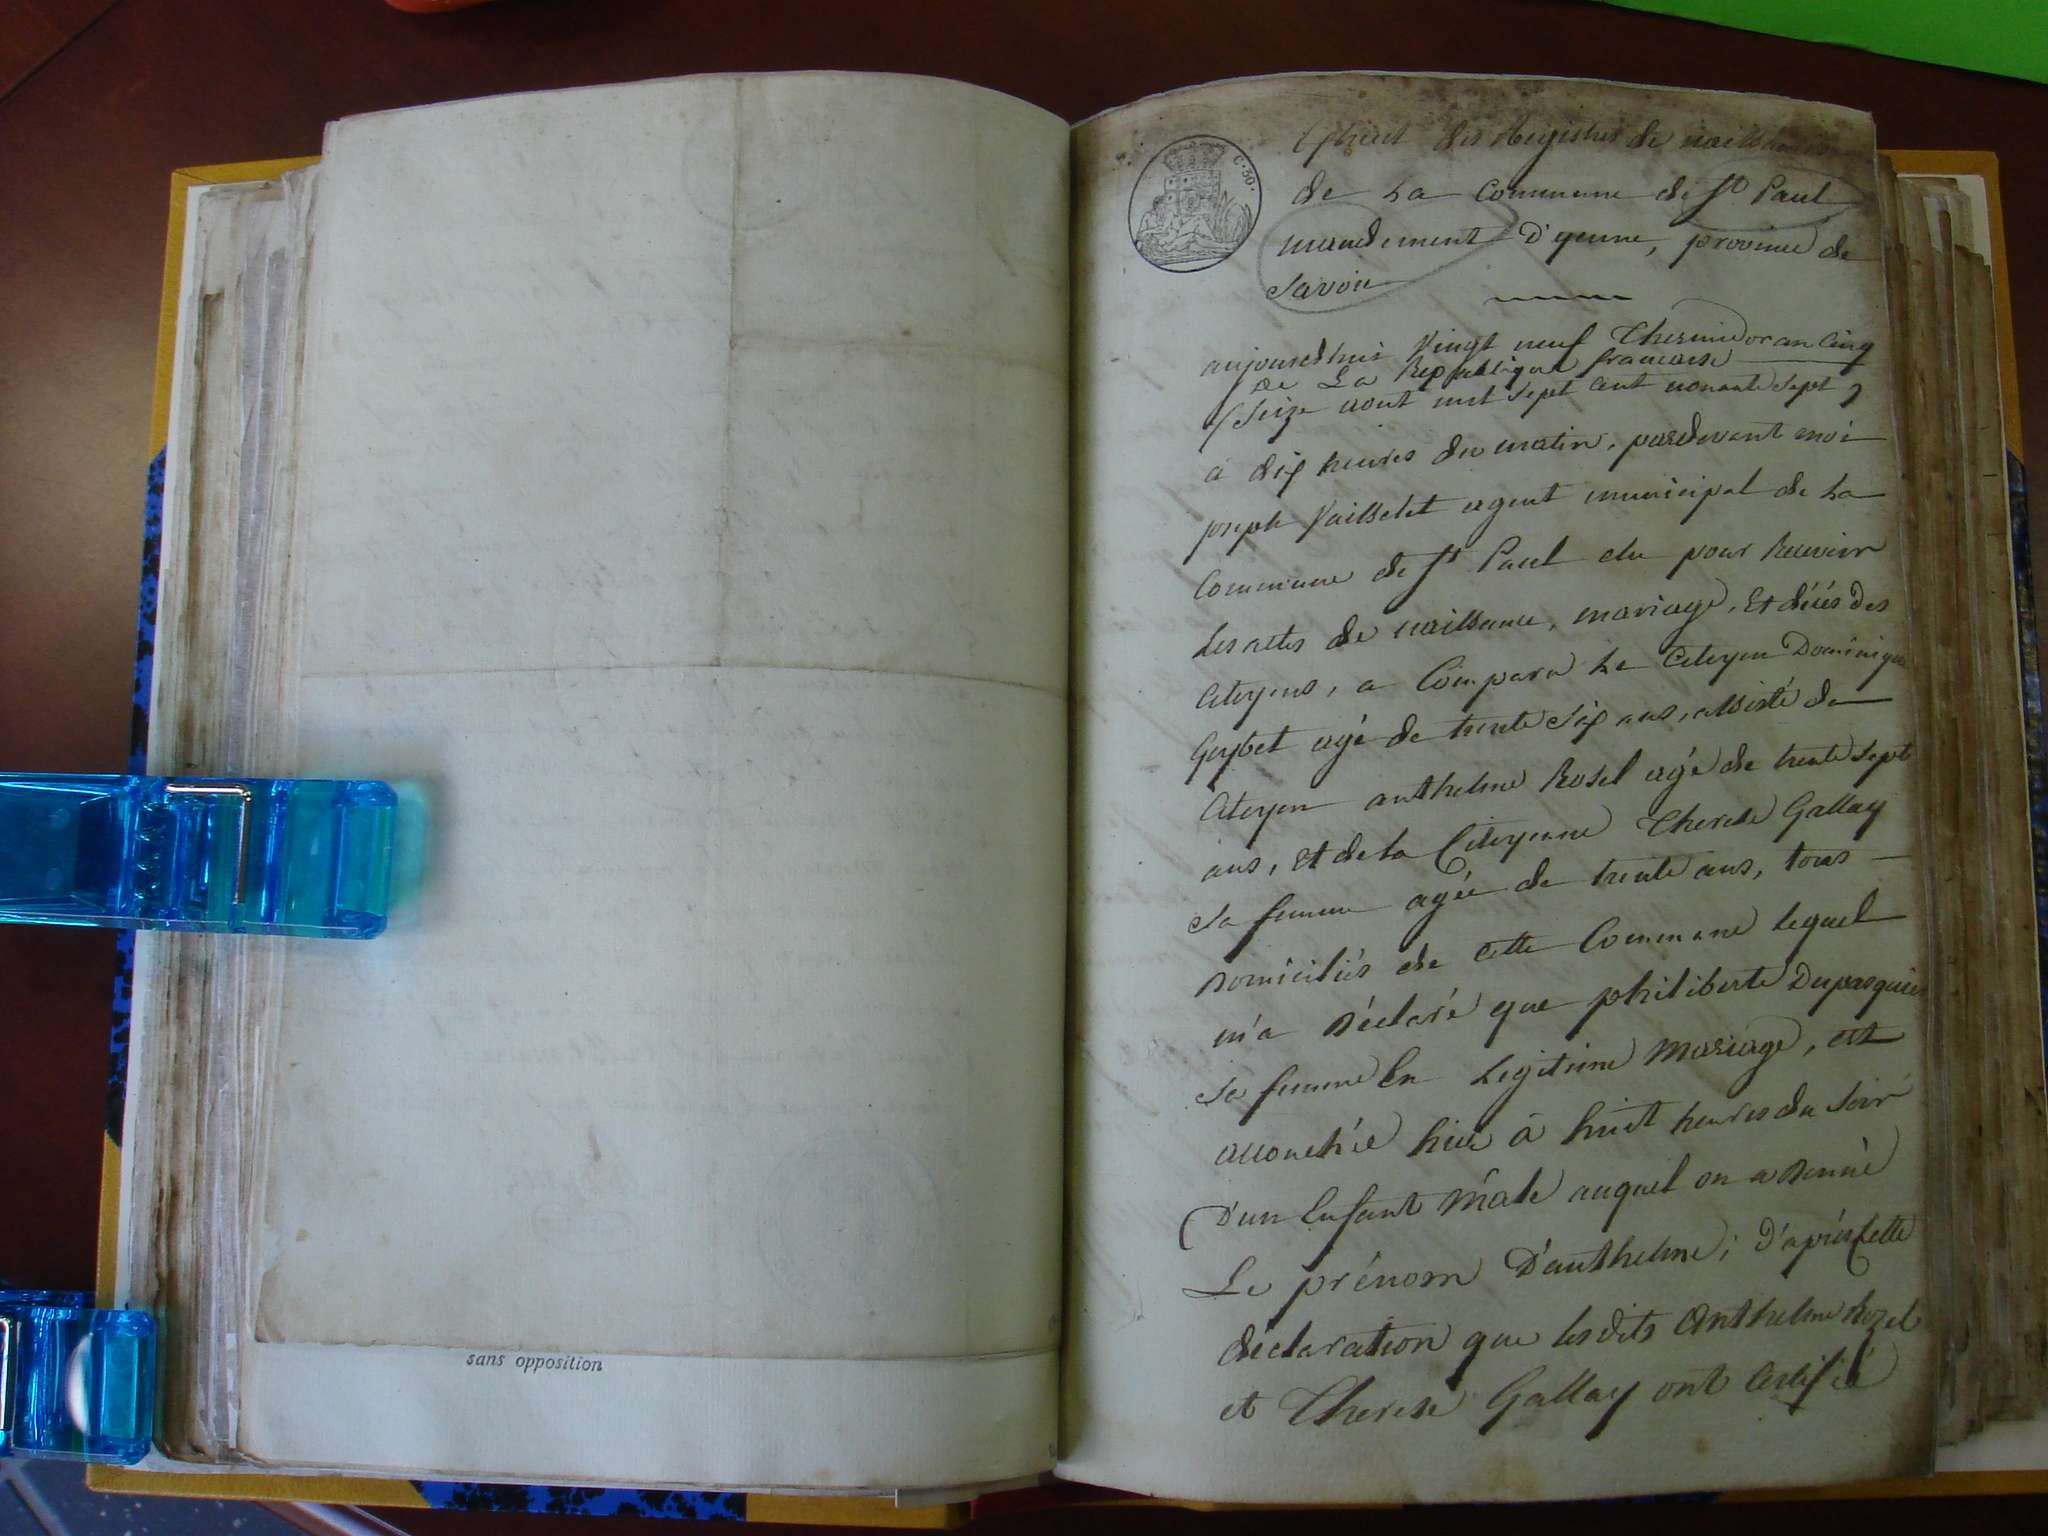 sans opposition
C. 30.
Extrait des Registres de naissance
de La Commune de St Paul
mandement D'yenne, province de
Savoie
aujourdhui Vingt neuf Thermidor an Cinq
de La Republique francaise
(Seize aout mil sept cent nonante sept)
a dix heures du matin, pardevant moi
joseph Vaisselet agent municipal de La
Commune de St Paul elu pour Recevoir
Les actes de naissance, mariage, Et décés Des
Citoyens, a Comparu Le Citoyen Dominique
Guybet agé de trente Six ans, assisté du
Citoyen anthelme Rosel agé de trente Sept
ans, Et de la Citoyenne Therese Gallay
Sa femme agée de trente ans, tous
Domiciliés de cette Commune Lequel
m'a Déclaré que philiberte Dupasquier
Sa femme En Legitime Mariage, est
accouchée hier à huit heures du Soir
D'un Enfant Mâle auquel on a Donné
Le prénom D'anthelme; D'après Cette
déclaration que lesdits Anthelme Rozel
et Therese Gallay ont Certifié